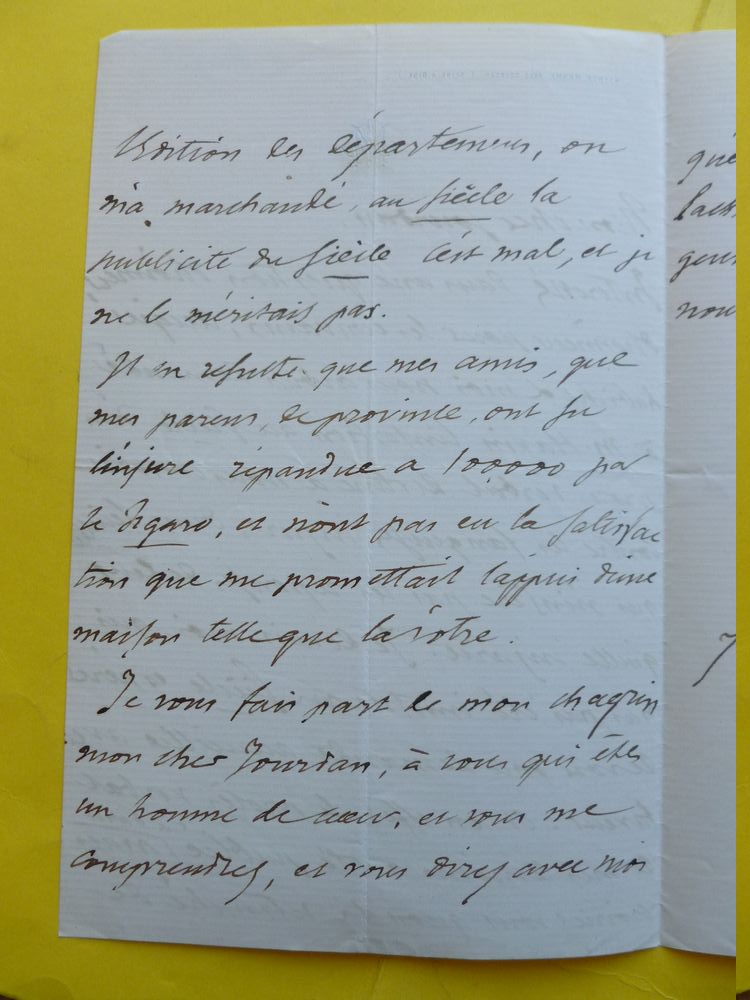 l'édition des départemens, on
m'a marchandé, au Siècle la
publicité du Siècle c'est mal, et je
ne le méritais pas.
Il en resulte que mes amis, que
mes parens, de province, ont su
l'injure répandue a 100000 par
le Figaro, et n'ont pas eu la satisfac
tion que me promettait l'appui d'une
maison telle que la vôtre.
Je vous fais part de mon chagrin
mon cher Jourdan, à vous qui êtes
un homme de cœur, et vous me
comprendrez, et vous direz avec moi
que
nou